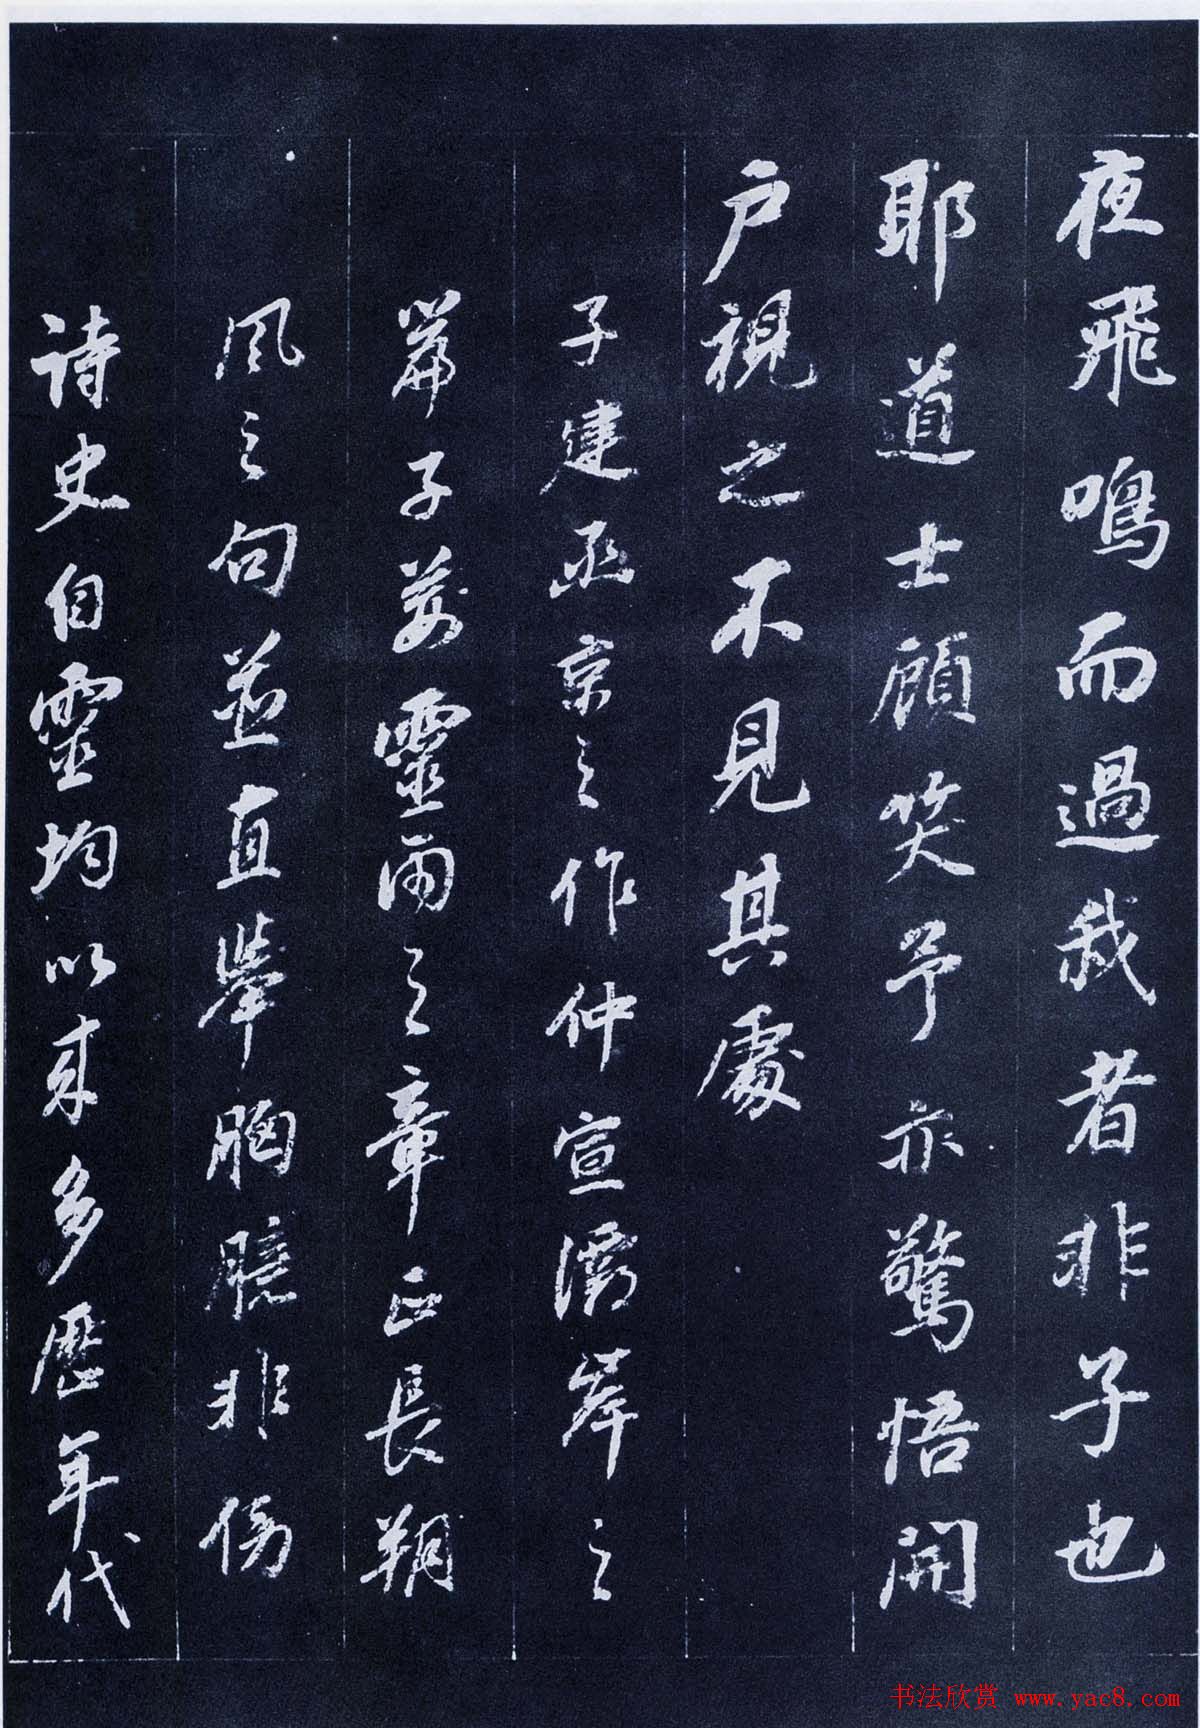 夜飛鳴而過我者非子也
耶道士顧笑予亦驚悟開
戶視之不見其處
子建函京之作仲宣灞岸之
篇子荊靈雨之章正長朔
風之句並直舉胸臆非傍
詩史自靈均以來多歷年代
书法欣赏 www.yac8.com